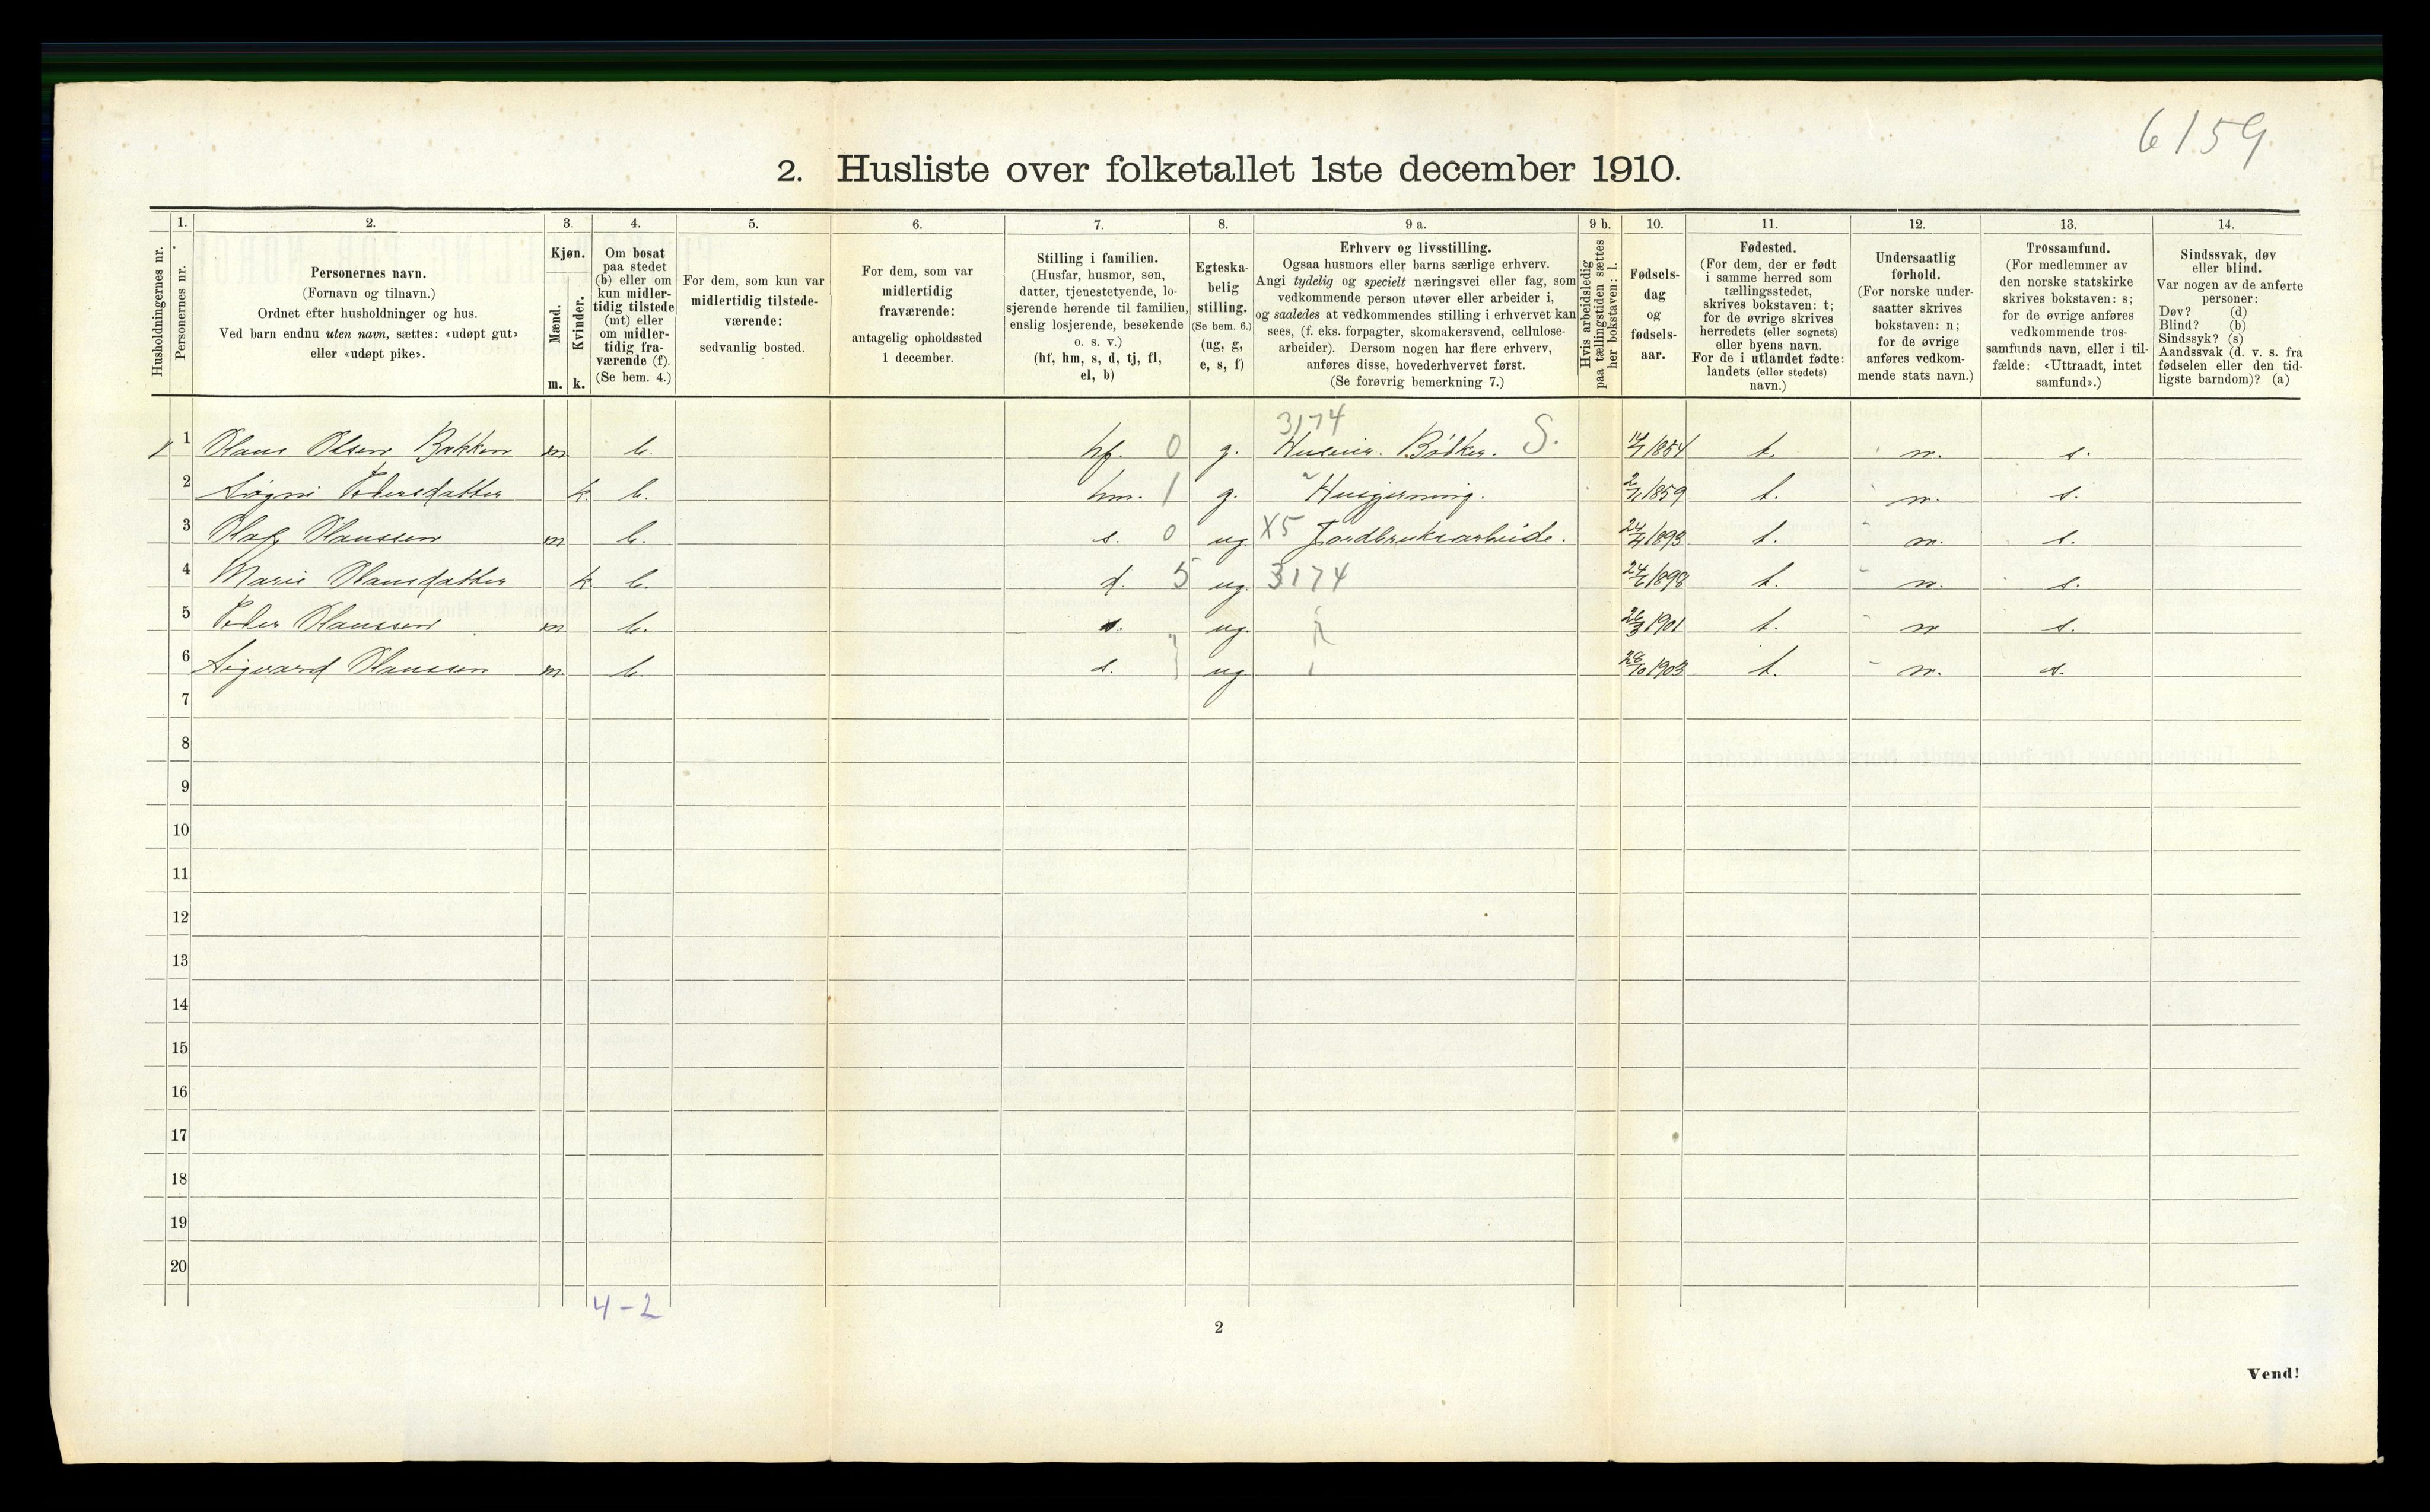 6159
2. Husliste over folketallet 1ste december 1910.
Husholdningernes nr.
1.
Personernes nr.
2.
Personernes navn.
(Fornavn og tilnavn.)
Ordnet efter husholdninger og hus.
Ved barn endnu uten navn, sættes: «udøpt gut»
eller «udøpt pike».
3.
Kjøn.
Mænd.
Kvinder.
m. k.
4.
Om bosat
paa stedet
(b) eller om
kun midler-
tidig tilstede
(mt) eller
om midler-
tidig fra-
værende (f).
(Se bem. 4.)
5.
For dem, som kun var
midlertidig tilstede-
værende:
sedvanlig bosted.
6.
For dem, som var
midlertidig
fraværende:
antagelig opholdssted
1 december.
7.
Stilling i familien.
(Husfar, husmor, søn,
datter, tjenestetyende, lo-
sjerende hørende til familien,
enslig losjerende, besøkende
o. s. v.)
(hf, hm, s, d, tj, fl,
el, b)
8.
Egteska-
belig
stilling.
(Se bem. 6.)
(ug, g,
e, s, f)
9 a.
Erhverv og livsstilling.
Ogsaa husmors eller barns særlige erhverv.
Angi tydelig og specielt næringsvei eller fag, som
vedkommende person utøver eller arbeider i,
og saaledes at vedkommendes stilling i erhvervet kan
sees, (f. eks. forpagter, skomakersvend, cellulose-
arbeider). Dersom nogen har flere erhverv,
anføres disse, hovederhvervet først.
(Se forøvrig bemerkning 7.)
9 b.
Hvis arbeidsledig
paa tællingstiden sættes
her bokstaven: l.
10.
Fødsels-
dag
og
fødsels-
aar.
11.
Fødested.
(For dem, der er født
i samme herred som
tællingsstedet,
skrives bokstaven: t;
for de øvrige skrives
herredets (eller sognets)
eller byens navn.
For de i utlandet fødte:
landets (eller stedets)
navn.)
12.
Undersaatlig
forhold.
(For norske under-
saatter skrives
bokstaven: n;
for de øvrige
anføres vedkom-
mende stats navn.)
13.
Trossamfund.
(For medlemmer av
den norske statskirke
skrives bokstaven: s;
for de øvrige anføres
vedkommende tros-
samfunds navn, eller i til-
fælde: «Uttraadt, intet
samfund».)
14.
Sindssvak, døv
eller blind.
Var nogen av de anførte
personer:
Døv? (d)
Blind? (b)
Sindssyk? (s)
Aandssvak (d. v. s. fra
fødselen eller den tid-
ligste barndom)? (a)
3174
1 Hans Olsen Bakken m. b. hf. 0 g. Huseier. Bødker. S. 1854 t. n. s.
2 Pedersdatter k. b. hm. 1 g. Husgjerning. 1859 t. n. s.
3 Olaf Hanssen m b. s. 0 ug X5 Jordbruksarbeide. 1893 t. n. s.
4 Marie Hansdatter k b. d. 5 ug. 3174 1898 t. n. s.
5 Peder Hanssen m b. s. ug. 26/3 1901 t. n s.
6 Sigvard Hanssen m. b. s. ug 28/10 1903 t. n. s.
7
8
9
10
11
12
13
14
15
16
17
18
19
20
4-2
2
Vend!